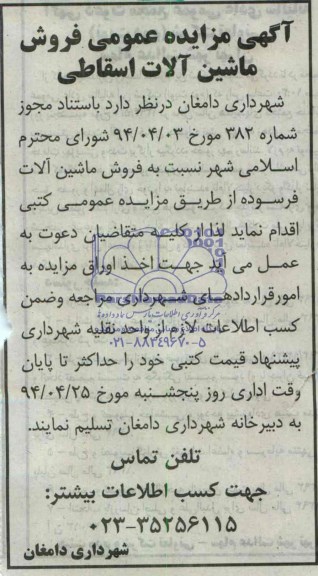 آگهی مزایده عمومی فروش
ماشین آلات اسقاطی
شهرداری دامغان درنظر دارد باستناد مجوز
شماره ۳۸۲ مورخ ۹۴/۰۴/۰۳ شورای محترم
اسلامی شهر نسبت به فروش ماشین آلات
فرسوده از طریق مزایده عمومی کتبی
اقدام نماید لذا از کلیه متقاضیان دعوت به
عمل می آید جهت اخذ اوراق مزایده به
امورقراردادهای شهرداری مراجعه وضمن
کسب اطلاعات لازم از واحد نقلیه شهرداری
۰۲۱-۸۸۳۴۹۶۷۰-۵
پیشنهاد قیمت کتبی خود را حداکثر تا پایان
وقت اداری روز پنجشنبه مورخ ۹۴/۰۴/۲۵
به دبیرخانه شهرداری دامغان تسلیم نمایند.
تلفن تماس
جهت کسب اطلاعات بیشتر:
۰۲۳-۳۵۲۵۶۱۱۵
شهرداری دامغان